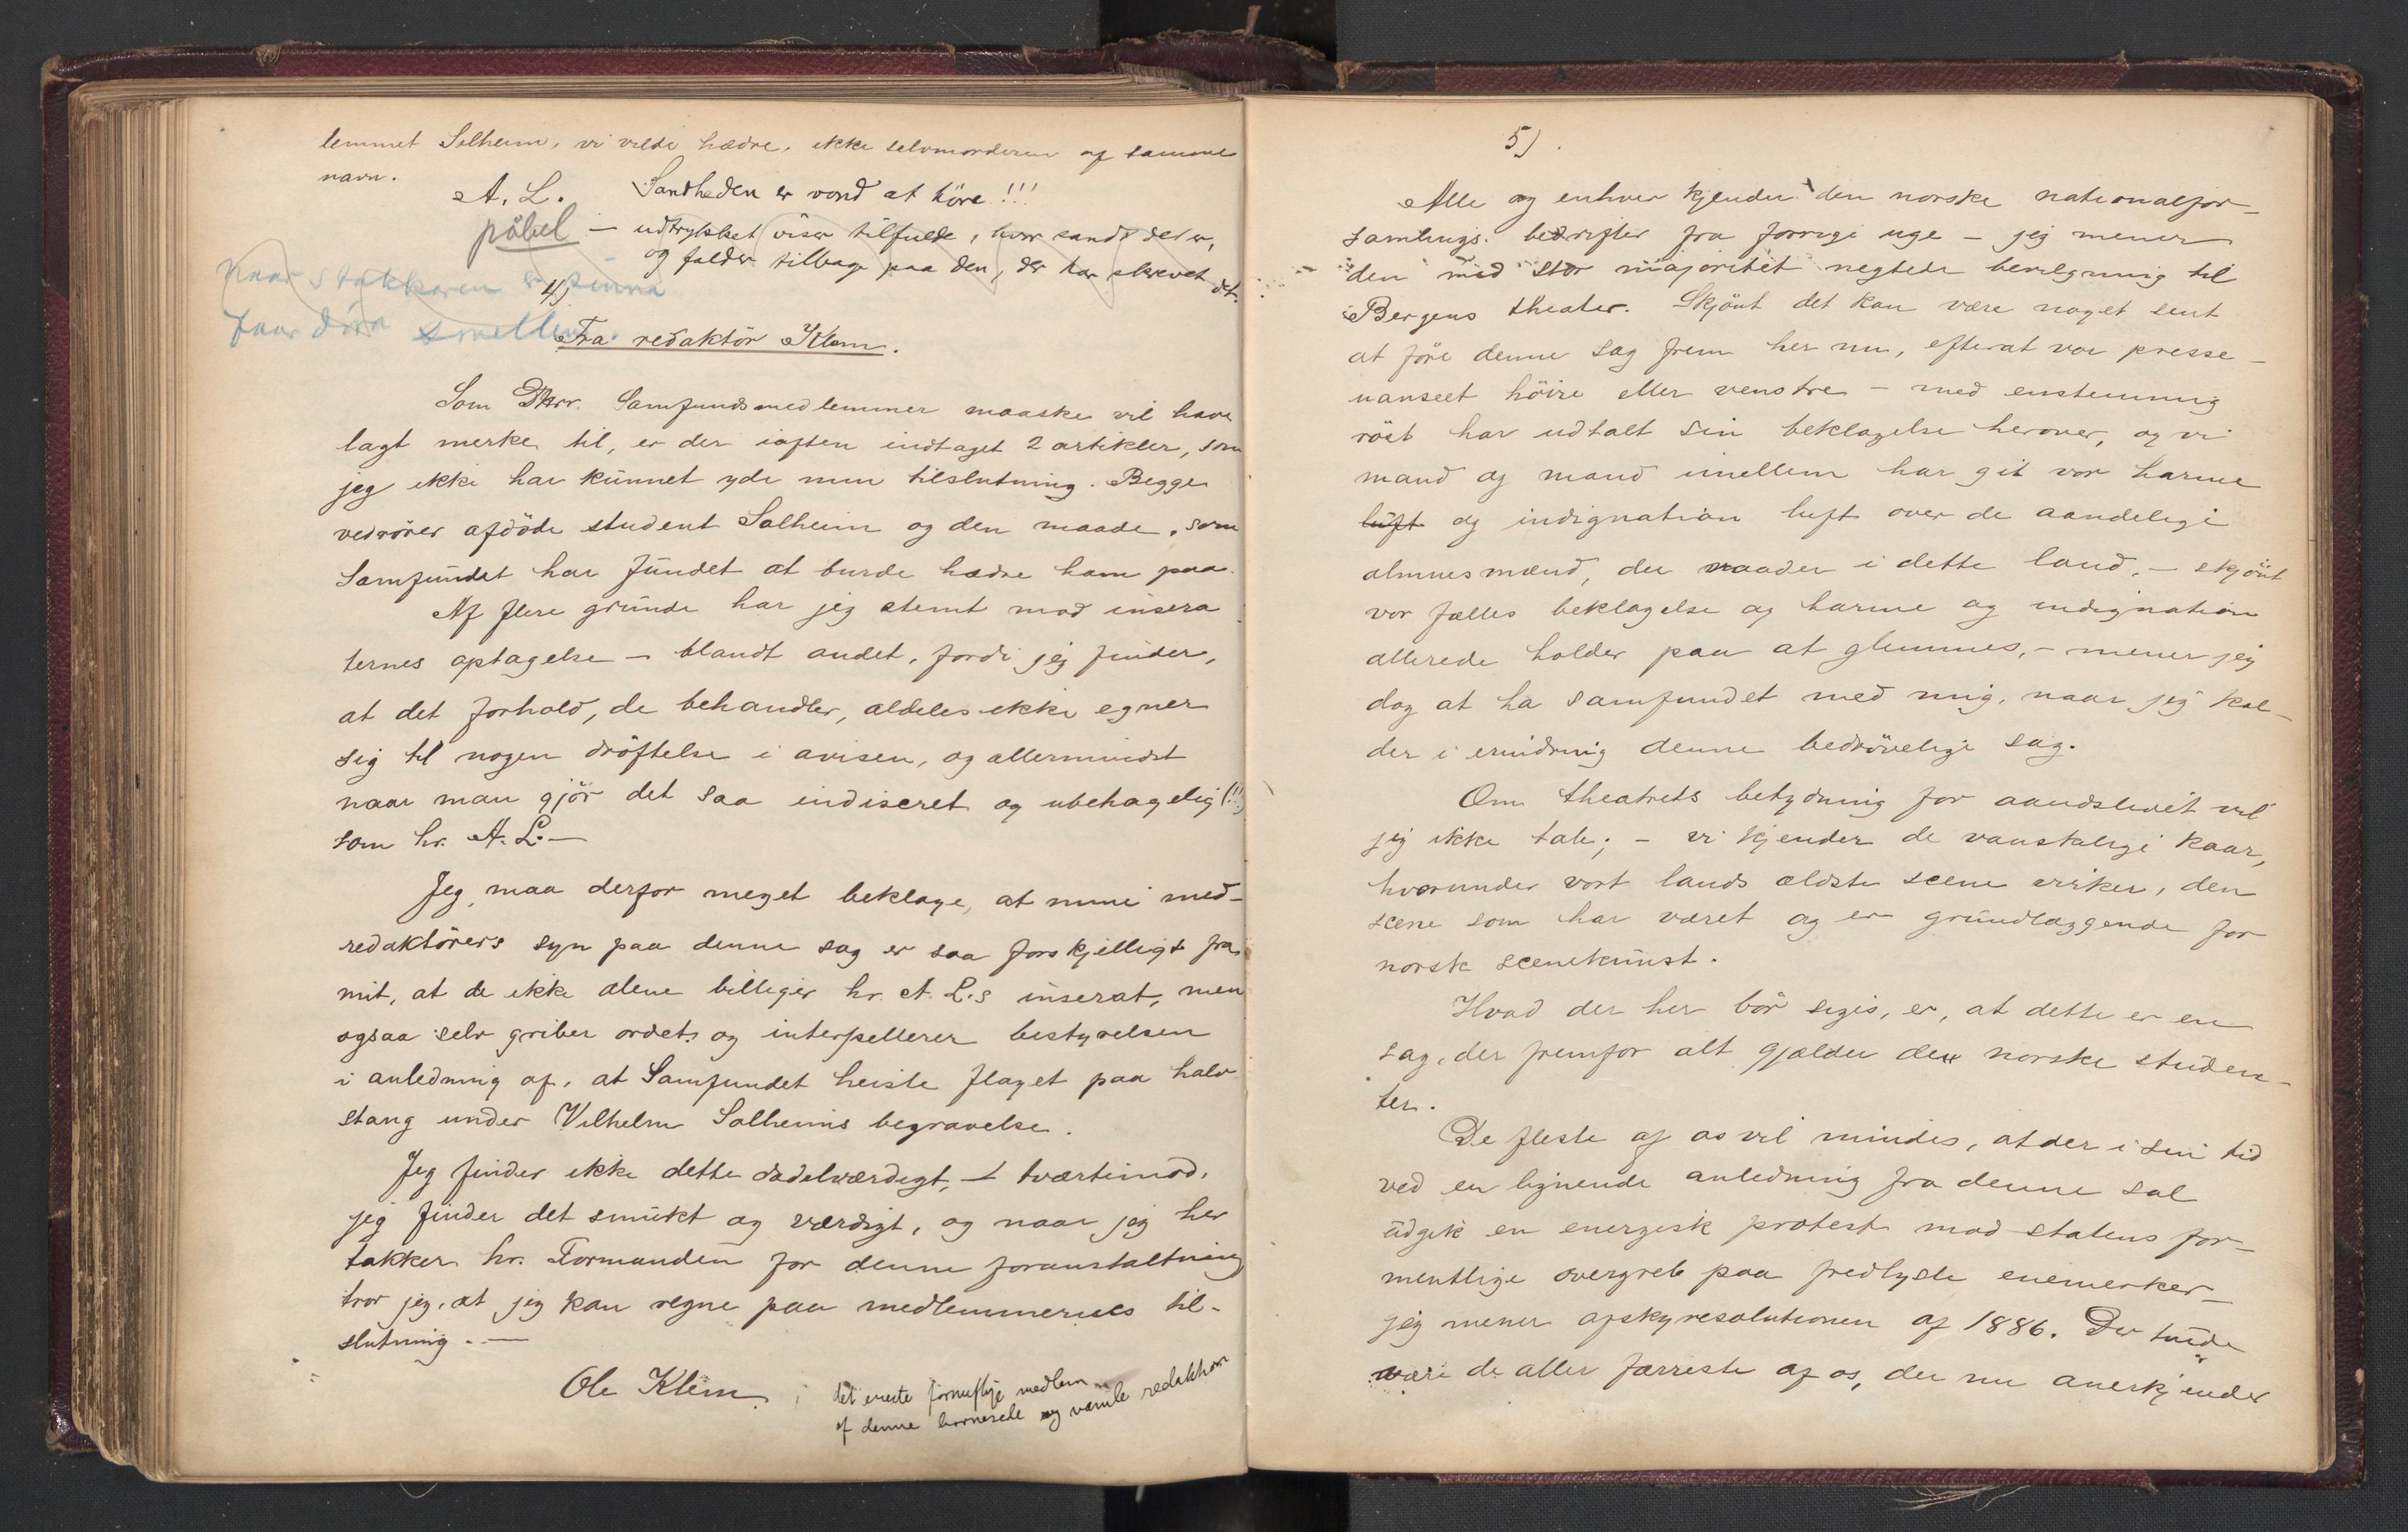 lemmet Solheim, vi vilde hædre, ikke selvmorderen af samme
navn.
A. L. Sandheden er vond at höre!!!
pöbel — udtrykket viser tilfulde, hvor sandt det er,
og falder tilbage paa den, der har skrevet det.
naar stakkaren er sinna
faar döra smellen.
4)
Fra redaktör Klem.
Som Dhrr. Samfundsmedlemmer maaske vil have
lagt merke til, er der iaften indtaget 2 artikler, som
jeg ikke har kunnet yde min tilslutning. Begge
vedrörer afdöde student Solheim og den maade, som
Samfundet har fundet at burde hædre ham paa.
Af flere grunde har jeg stemt mod insera
ternes optagelse — blandt andet, fordi jeg finder,
at det forhold, de behandler, aldeles ikke egner
sig til nogen dröftelse i avisen, og allermindst
naar man gjör det saa indiscret og ubehagelig (!!)
som hr. A. L. —
Jeg maa derfor meget beklage, at mine med-
redaktörers syn paa denne sag er saa forskjelligt fra
mit, at de ikke alene billiger hr. A. L.s inserat, men
ogsaa selv griber ordet og interpellerer bestyrelsen
i anledning af, at Samfundet heiste flaget paa halv
stang under Vilhelm Solheims begravelse.
Jeg finder ikke dette dadelværdigt, — tværtimod,
jeg finder det smukt og værdigt, og naar jeg her
takker hr. Formanden for denne foranstaltning
tror jeg, at jeg kan regne paa medlemmernes til-
slutning. —
Ole Klem, det eneste fornuftige medlem
af denne bornerede og vamle redaktion
5).
Alle og enhver kjender den norske nationalfor-
samlings bedrifter fra forrige uge — jeg mener
den med stor majoritet negtede bevilgning til
Bergens theater. Skjönt det kan være noget sent
at före denne sag frem her nu, efterat vor presse —
uanseet höire eller venstre — med enstemmig
röst har udtalt sin beklagelse herover, og vi
mand og mand imellem har git vor harme
luft og indignation luft over de aandelige
almuesmænd, der raader i dette land, — skjönt
vor fælles beklagelse og harme og indignation
allerede holder paa at glemmes, — mener jeg
dog at ha samfundet med mig, naar jeg kal-
der i erindring denne bedrövelige sag.
Om theatrets betydning for aandslivet vil
jeg ikke tale; — vi kjender de vanskelige kaar,
hvorunder vort lands ældste scene virker, den
scene som har været og er grundlæggende for
norsk scenekunst.
Hvad der her bör siges, er, at dette er en
sag, der fremfor alt gjælder den norske studen-
ter.
De fleste af os vil mindes, at der i sin tid
ved en lignende anledning fra denne sal
udgik en energisk protest mod statens for-
mentlige overgreb paa fredlyste enemerker —
jeg mener afskyresolutionen af 1886. Der turde
være de aller færreste af os, der nu anerkjender